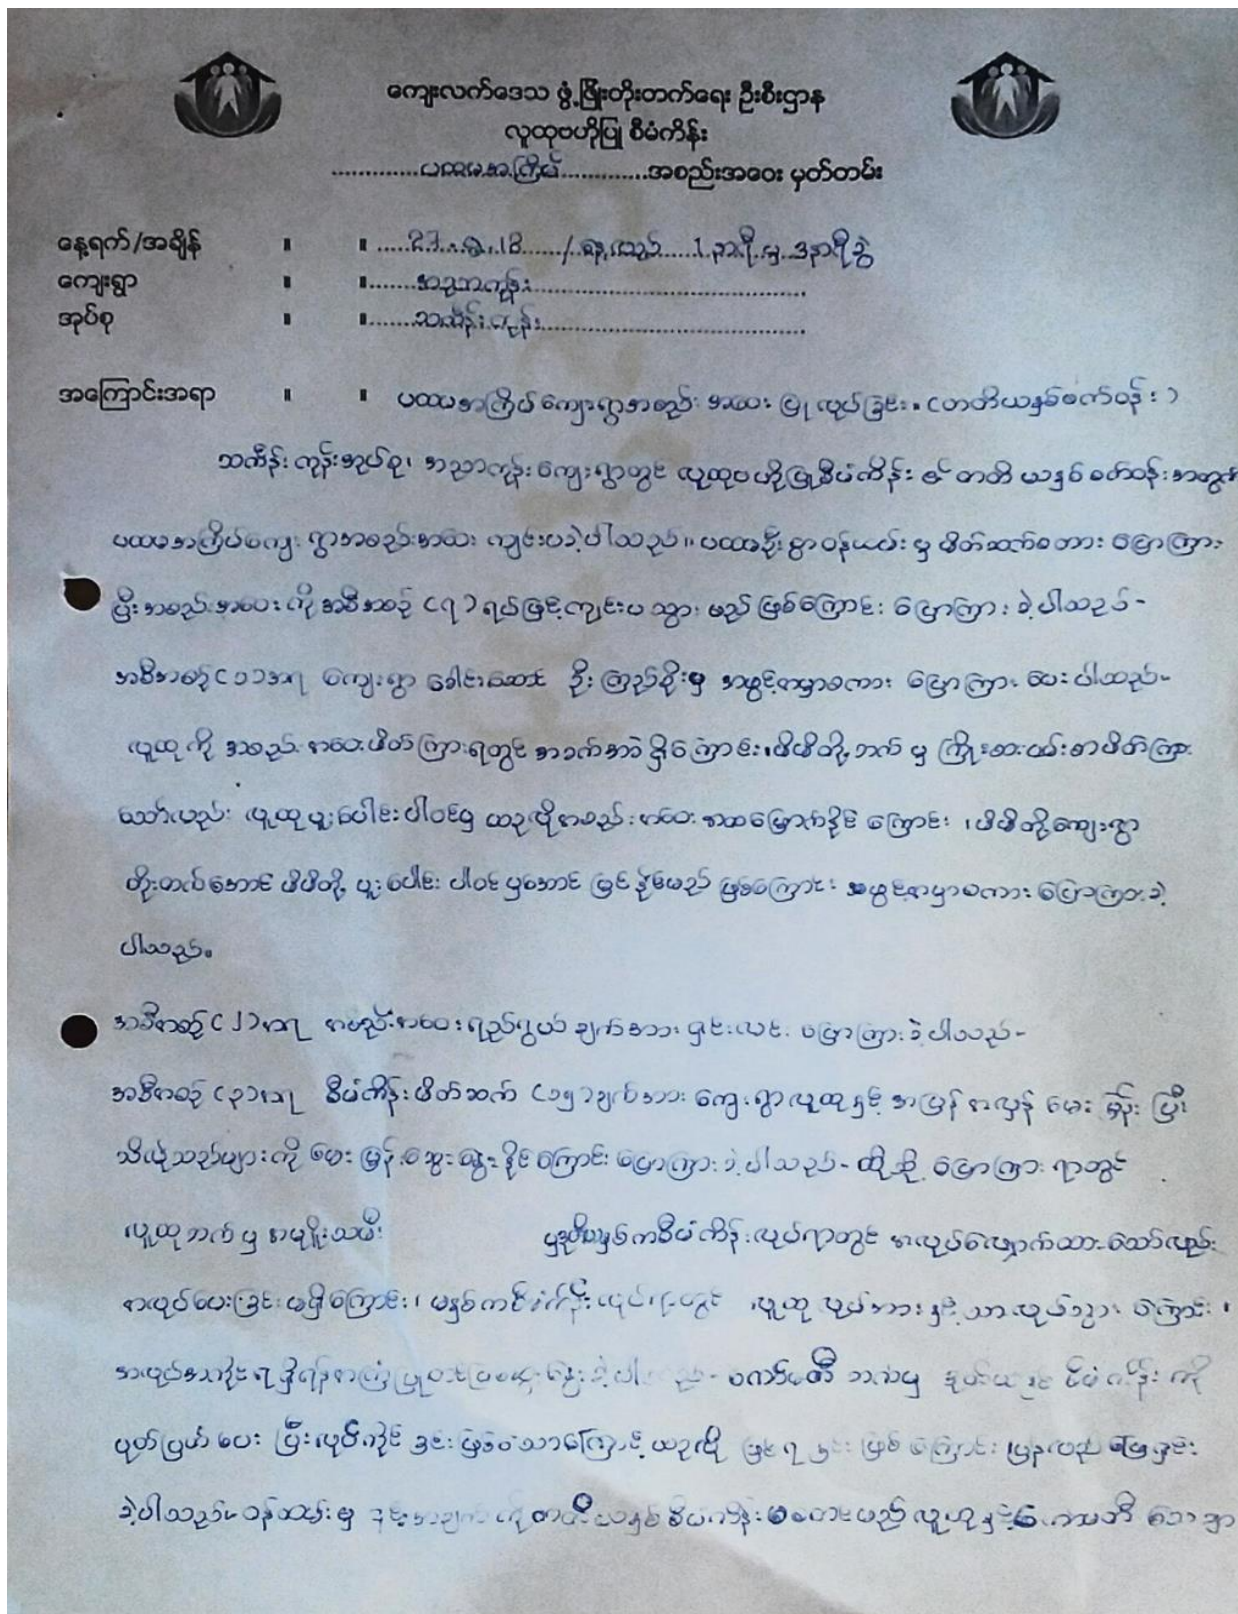 ကျေးလက်ဒေသ ဖွံ့ဖြိုးတိုးတက်ရေး ဦးစီးဌာန
လူထုဗဟိုပြု စီမံကိန်း
.............ပထမအကြိမ်.............အစည်းအဝေး မှတ်တမ်း
နေ့ရက်/အချိန် ။ ။ ..... 23 . ၅ . 18 ....../ နေ့လည် .... 1 နာရီ မှ 3နာရီခွဲ
ကျေးရွာ ။ ။.......အညာကုန်း.......
အုပ်စု ။ ။.......သကိန်းကုန်း.......
အကြောင်းအရာ ။ ။ ပထမအကြိမ် ကျေးရွာအစည်းအဝေး ပြုလုပ်ခြင်း။ (တတိယနှစ်စက်ဝန်း)
သကိန်းကုန်းအုပ်စု၊ အညာကုန်းကျေးရွာတွင် လူထုဗဟိုပြုစီမံကိန်း ၏ တတိယနှစ် စက်ဝန်းအတွက်
ပထမအကြိမ်ကျေးရွာအစည်းအဝေး ကျင်းပခဲ့ပါသည်။ ပထမဦးစွာ ဝန်ထမ်း မှ ဖိတ်ဆက်စကား ပြောကြား
ပြီး အစည်းအဝေး ကို အစီအစဉ် (၇) ရပ်ဖြင့်ကျင်းပ သွား မည် ဖြစ်ကြောင်း ပြောကြား ခဲ့ပါသည်-
အစီအစဉ် (၁)အရ ကျေးရွာ ခေါင်းဆောင် ဦးကြည်စိုးမှ အဖွင့်အမှာစကား ပြောကြား ပေးပါသည်-
လူထုကို အစည်းအဝေးဖိတ်ကြားရတွင် အခက်အခဲ ရှိကြောင်း၊ မိမိတို့ဘက် မှ ကြိုးစားပမ်းစားဖိတ်ကြား
သော်လည်း လူထုပူးပေါင်းပါဝင်မှ ယခုလိုအစည်းအဝေး အထမြောက်နိုင် ကြောင်း ၊ မိမိတို့ကျေးရွာ
တိုးတက်အောင် မိမိတို့ ပူးပေါင်း ပါဝင် မှအောင်မြင်နိုင်မည် ဖြစ်ကြောင်း အဖွင့်အမှာစကား ပြောကြားခဲ့
ပါသည်။
အစီအစဉ် (၂)အရ အစည်းအဝေး ရည်ရွယ် ချက်အား ရှင်းလင်း ပြောကြားခဲ့ပါသည်-
အစီအစဉ် (၃)အရ စီမံကိန်းမိတ်ဆက် (၁၅)ချက်အား ကျေးရွာလူထုနှင့် အပြန် အလှန် မေးမြန်း ပြီး
သိလိုသည်များကို မေးမြန်းဆွေးနွေးနိုင်ကြောင်း ပြောကြား ခဲ့ပါသည်- ထိုသို့ ပြောကြား ရာတွင်
လူထုဘက် မှ အမျိုးသမီး မှဒုတိယနှစ်ကစီမံကိန်းလုပ်ရာတွင် အလုပ်လျှောက်ထားသော်လည်း
အလုပ်ပေးခြင်း မရှိကြောင်း၊ မနှစ်ကစီမံကိန်း လူထု လုပ်အားနှင့်သာ လုပ်သွား ကြောင်း ၊
ကော်မတီ ဘက်မှ စီမံကိန်း ကို
ပုတ်ပြတ် ပေး ပြီးလုပ်ကိုင် ယခုလို ဖြစ် ကြောင်း ပြန်လည် ဖြေရှင်း
ခဲ့ပါသည်- ဝန်ထမ်း မှ တတိယနှစ် စီမံကိန်း မစတင်မည် လူထုနှင့်